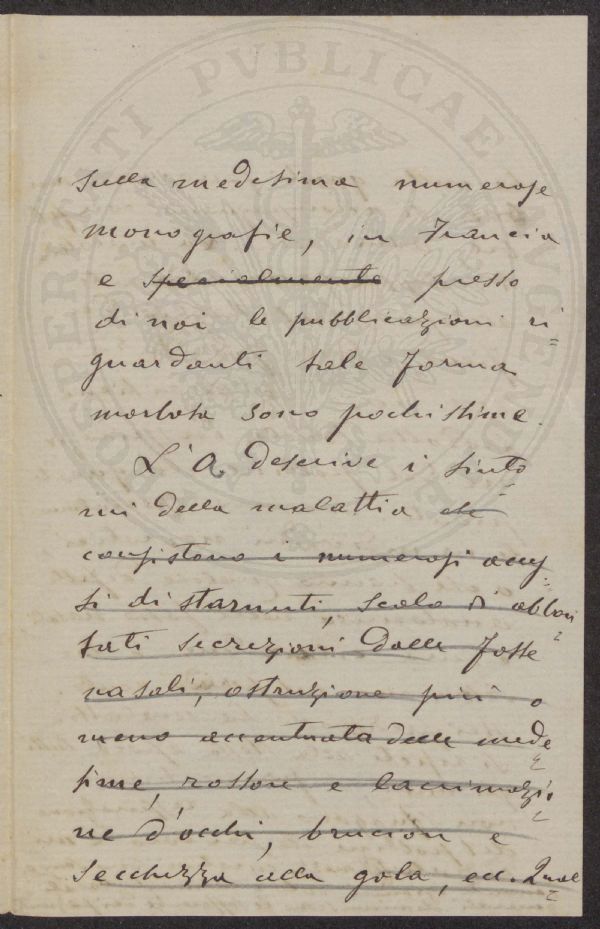 PROSPERITATI PVBLICAE AVGENDAE
sulla medesima numerose
monografie, in Francia
e specialmente presso
di noi le pubblicazioni ri=
guardanti tale forma
morbosa sono pochissime.
L'A. descrive i sinto=
mi della malattia che
consistono i numerosi acces=
si di starnuti, scolo di abbon=
dati secrezioni dalle fosse
nasali, ostruzione più o
meno accentuata delle mede=
sime, rossore e lacrimazio=
ne d'occhi, bruciori e
secchezza alla gola, ecc. Qual=